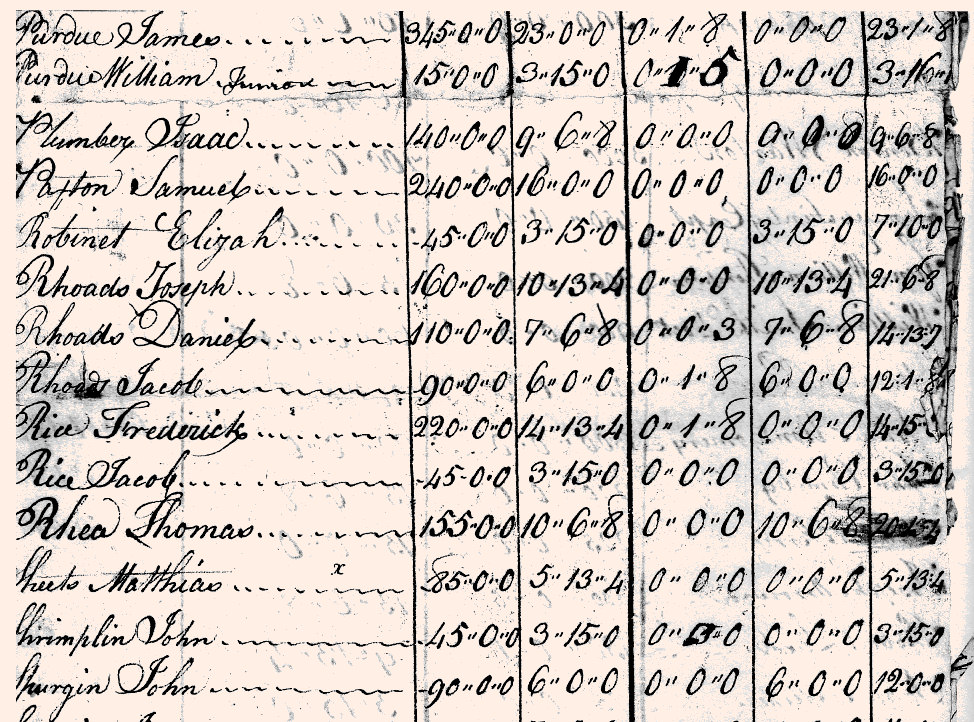 Purdue James 345"0"0 23"0"0 0"1"8 0"0"0 23"1"8
Purdue William Junior 15"0"0 3"15"0 0"1"5 0"0"0 3"16"
Plumber Isaac 140"0"0 9"6"8 0"0"0 0"0"0 9"6"8
Paxton Samuel 240"0"0 16"0"0 0"0"0 0"0"0 16"0"0
Robinet Elizah 45"0"0 3"15"0 0"0"0 3"15"0 7"10"0
Rhoads Joseph 160"0"0 10"13"4 0"0"0 10"13"4 21"6"8
Rhoads Daniel 110"0"0 7"6"8 0"0"3 7"6"8 14"13"7
Rhoads Jacob 90"0"0 6"0"0 0"1"8 6"0"0 12"1"8
Rice Frederick 220"0"0 14"13"4 0"1"8 0"0"0 14"15"
Rice Jacob 45"0"0 3"15"0 0"0"0 0"0"0 3"15"0
Rhea Thomas 155"0"0 10"6"8 0"0"0 10"6"8 20"13"4
Sheets Matthias x 85"0"0 5"13"4 0"0"0 0"0"0 5"13"4
Shrimplin John 45"0"0 3"15"0 0"0"0 0"0"0 3"15"0
Spurgin John 90"0"0 6"0"0 0"0"0 6"0"0 12"0"0